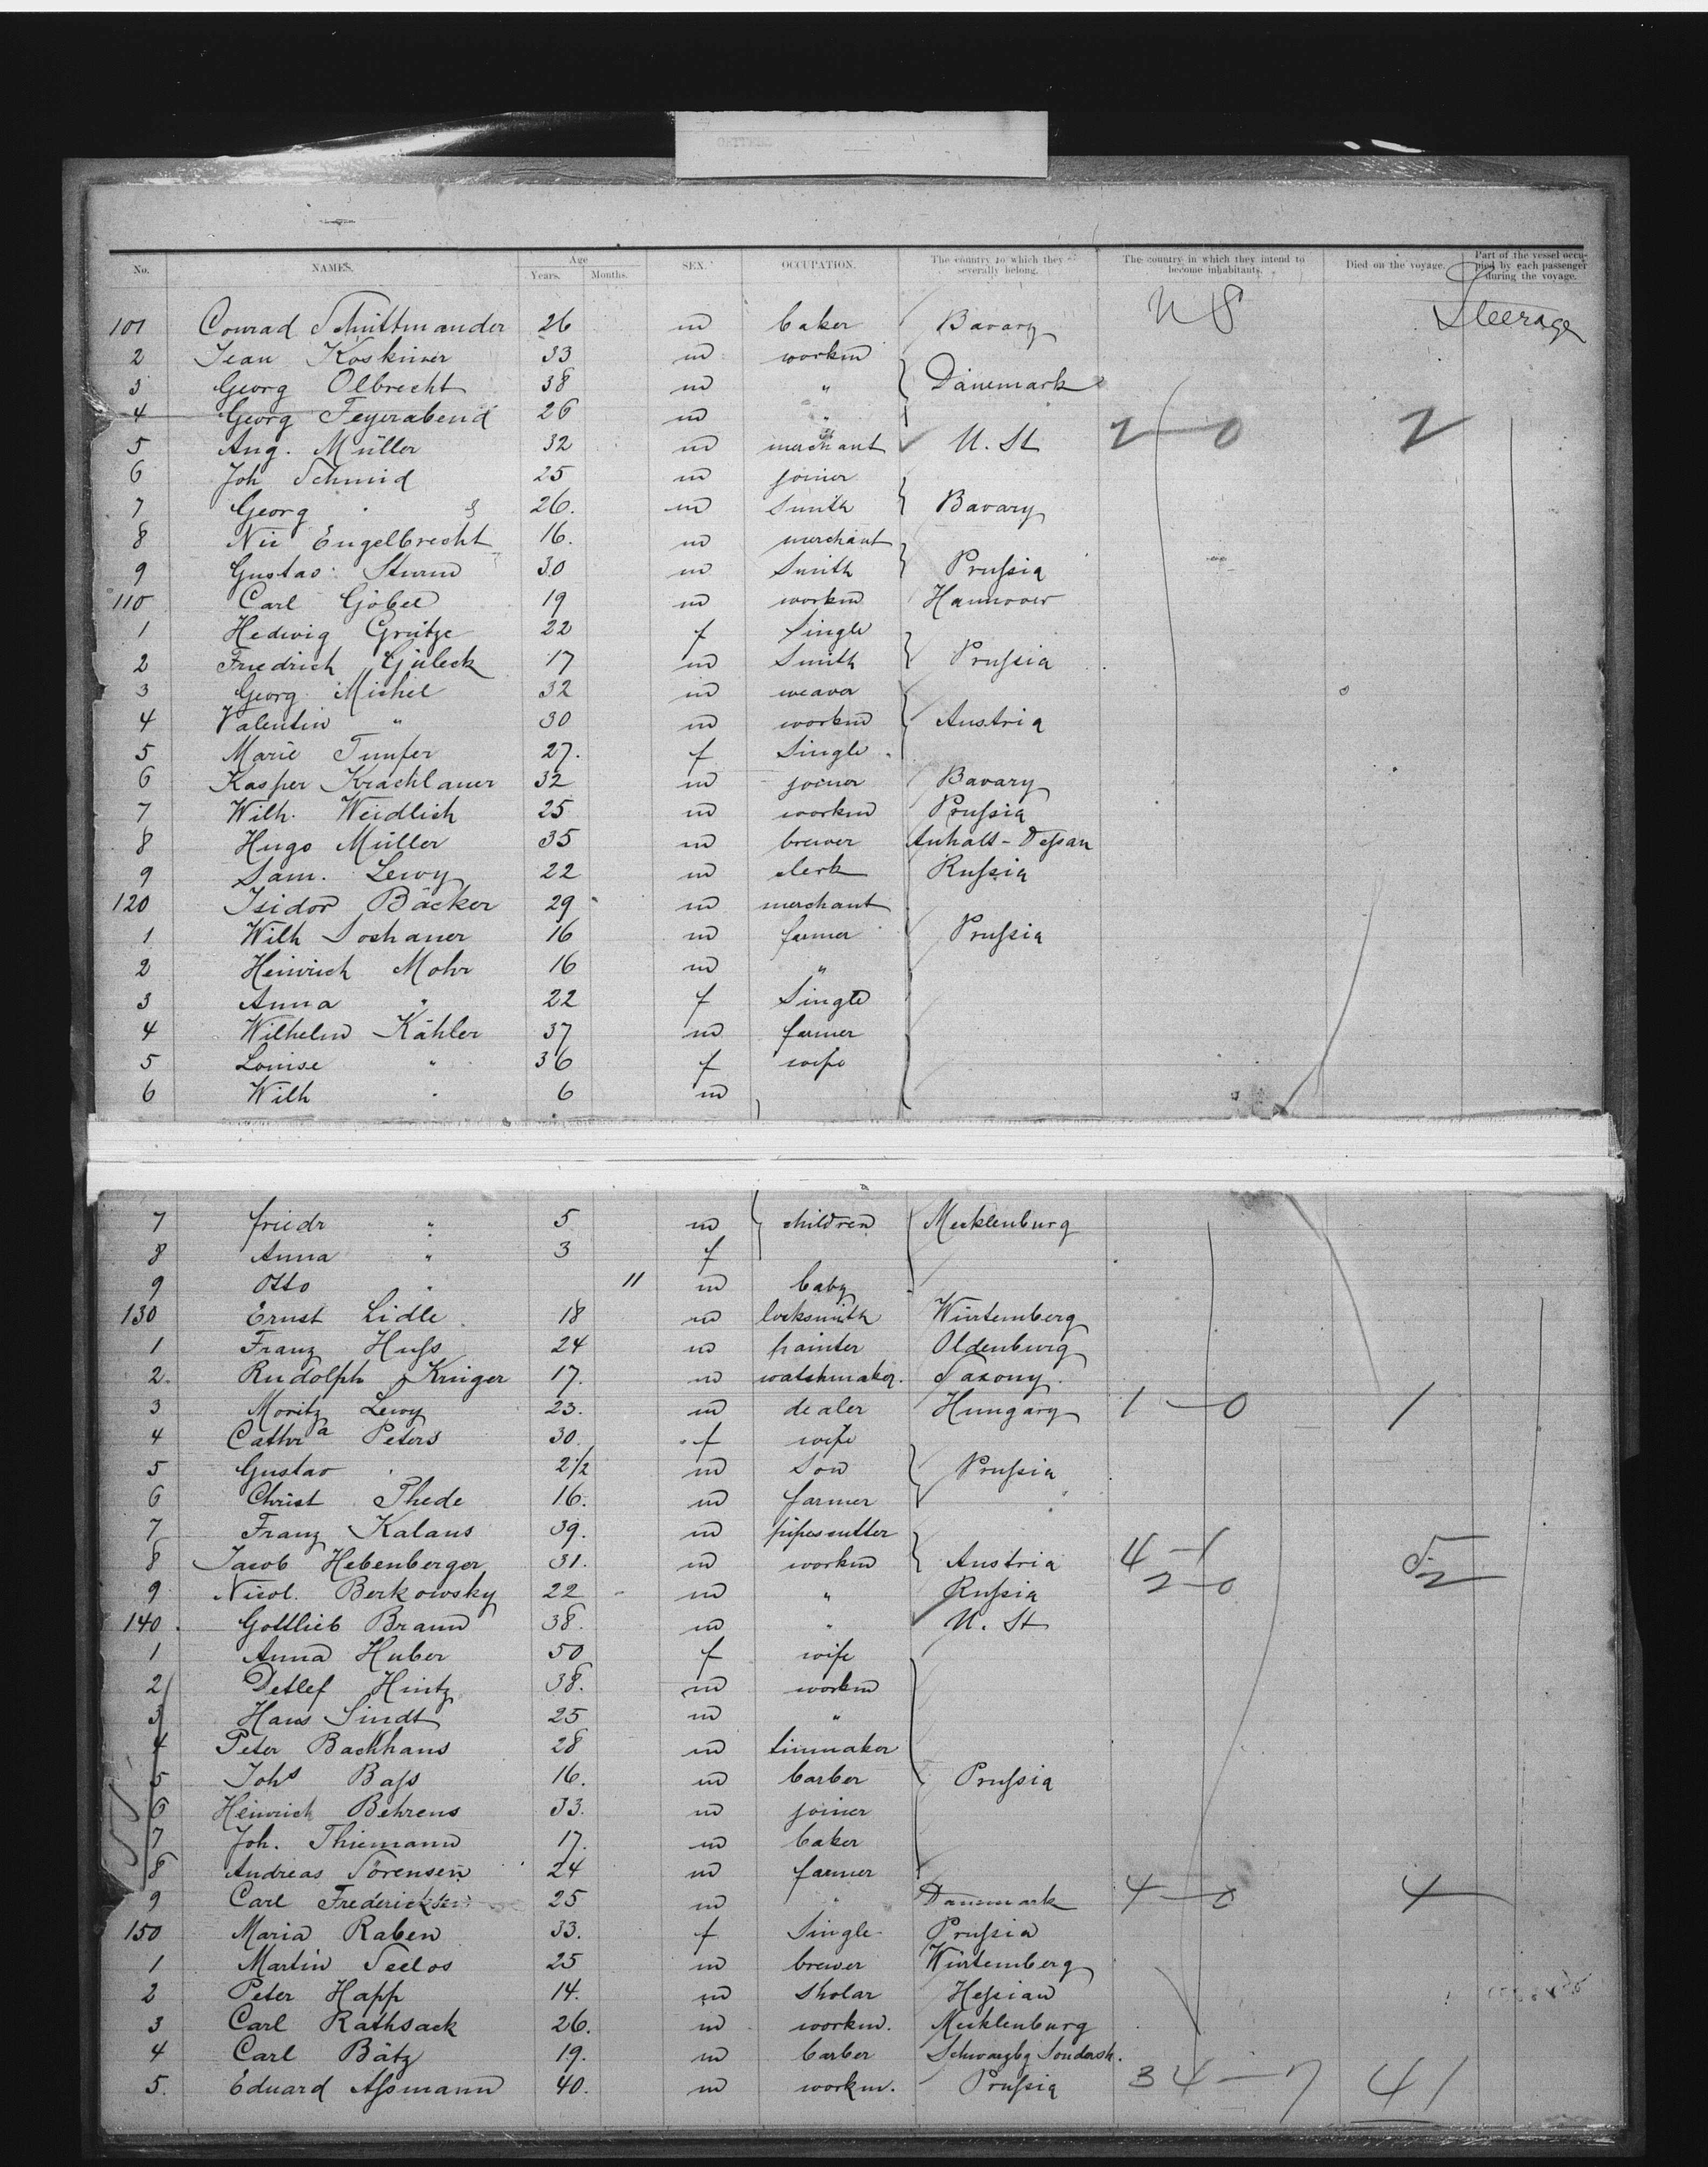 No. NAMES. Age Years. Months. SEX. OCCUPATION. The country to which they severally belong. The country in which they intend to become inhabitants. Died on the voyage. Part of the vessel occupied by each passenger during the voyage.
101 Conrad Schüttmander 26 m baker Bavary U S Steerage
2 Jean Koskiner 33 m workm
3 Georg Olbrecht 38 m " Dänemark
4 Georg Feyerabend 26 m "
5 Aug. Müller 32 m merchant U. St 2 — 0 2
6 Joh Schmid 25 m joiner
7 Georg " 26. m Smith Bavary
8 Nic Engelbrecht 16. m merchant
9 Gustav Sturm 30 m Smith Prussia
110 Carl Göbel 19 m workm Hannover
1 Hedwig Grütze 22 f Single
2 Friedrich Gjuleck 17 m Smith Prussia
3 Georg Michel 32 m weaver
4 Valentin " 30 m workm Austria
5 Marie Tumfer 27. f Single
6 Kasper Krachlauer 32 m joiner Bavary
7 Wilh. Weidlich 25 m workm Prussia
8 Hugo Müller 35 m brewer Anhalt-Dessau
9 Sam. Lewy 22 m clerk Russia
120 Isidor Bäcker 29 m merchant
1 Wilh Soshaner 16 m farmer Prussia
2 Heinrich Mohr 16 m "
3 Anna " 22 f Single
4 Wilhelm Kähler 37 m farmer
5 Louise " 36 f wife
6 Wilh " 6 m
7 friedr " 5 m children Mecklenburg
8 Anna " 3 f
9 Otto " 11 m baby
130 Ernst Lidle 18 m locksmith Würtemberg
1 Franz Huss 24 m painter Oldenburg
2. Rudolph Krüger 17. m watshmaker. Saxony.
3 Moritz Lewy 23. m dealer Hungary 1 — 0 1
4 Cathra Peters 30. f wife
5 Gustav " 2 1/2 m Son Prussia
6 Christ Thede 16. m farmer
7 Franz Kalaus 39. m pipescutter
8 Jacob Hebenberger 31. m workm Austria 4 — 1 5
9 Nicol. Berkowsky 22 m " Russia 2 — 0 2
140. Gottlieb Braun 38. m " U. St
1 Anna Huber 50 f wife
2 Detlef Hintz 38. m workm
3 Hans Sindt 25 m "
4 Peter Backhaus 28 m tinmaker
5 Johs Bass 16. m barber Prussia
6 Heinrich Behrens 33. m joiner
7 Joh. Thiemann 17. m baker
8 Andreas Sörensen 24 m farmer
9 Carl Fredericksen 25 m " Danemark 4 — 0 4
150 Maria Raben 33. f Single Prussia
1 Martin Seelos 25 m brewer Würtemberg
2 Peter Happ 14. m Sholar Hessian
3 Carl Rathsack 26. m workm. Mecklenburg
4 Carl Bätz 19. m barber Schwarzbg Sondersh.
5. Eduard Assmann 40. m workm. Prussia 34 — 7 41